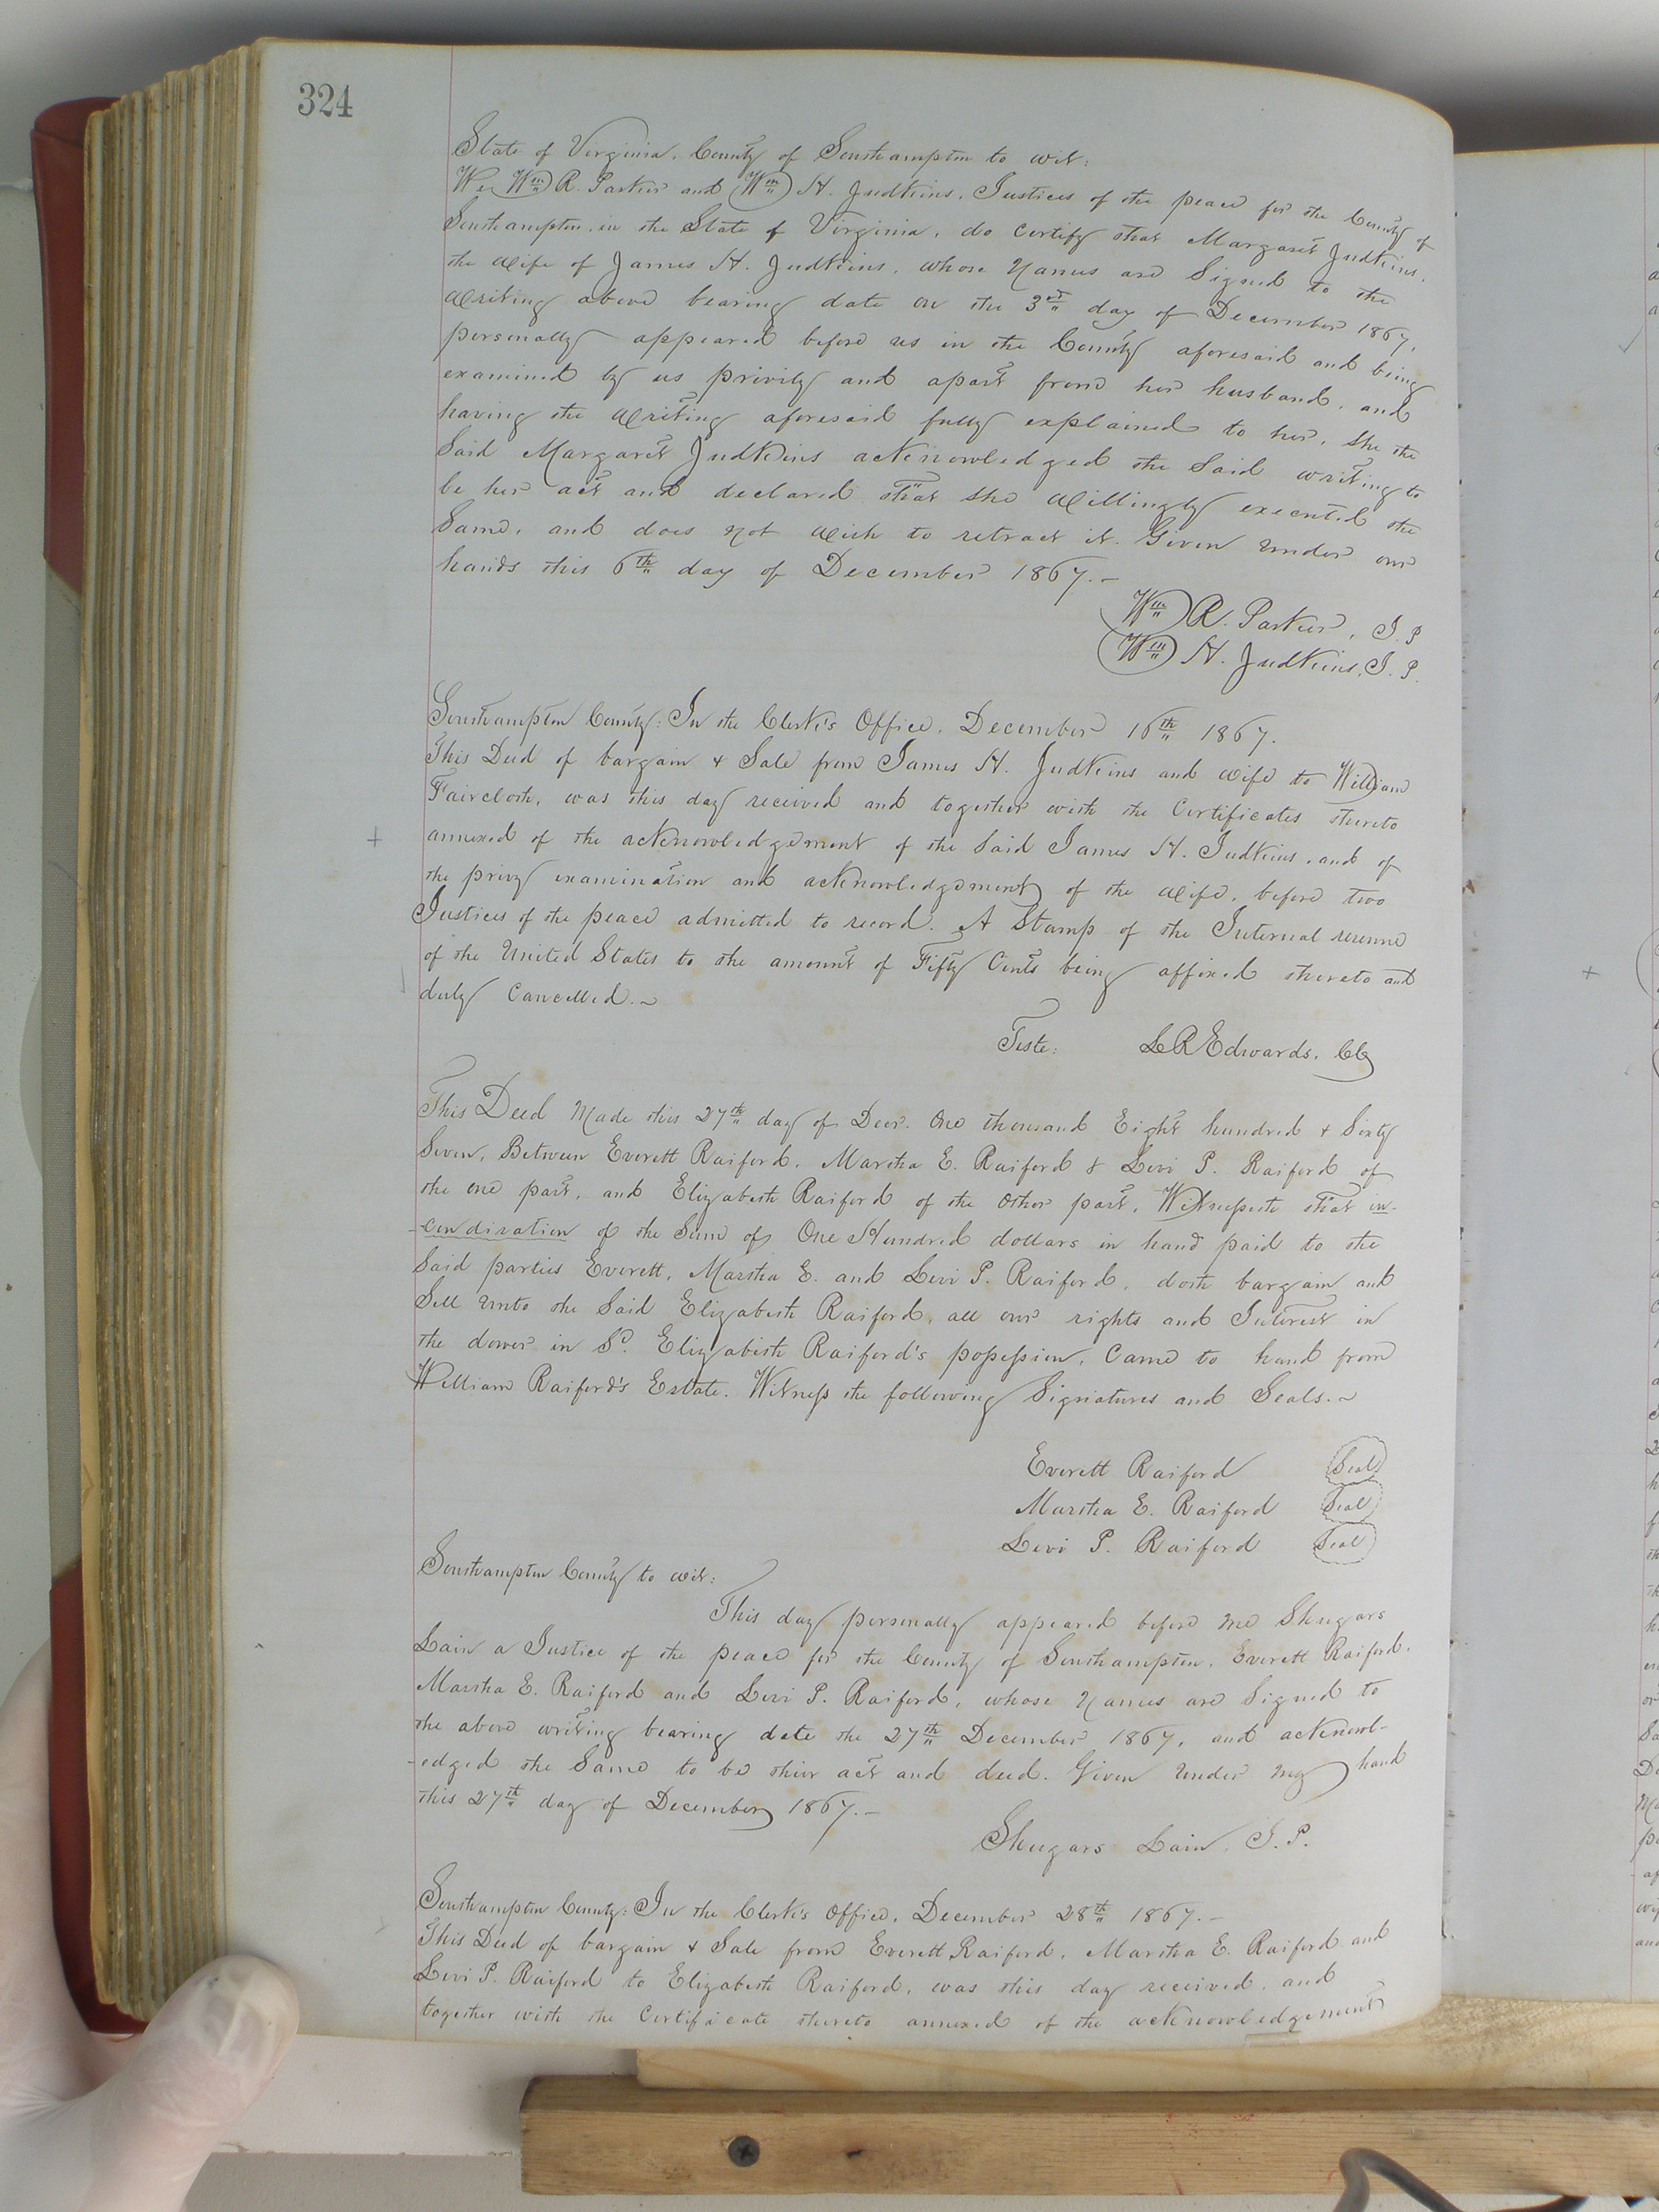 324
State of Virginia, County of Southampton to wit:
We Wm R. Parker and Wm H. Judkins, Justices of the peace for the County of
Southampton, in the State of Virginia, do certify that Margaret Judkins,
the wife of James H. Judkins, whose Names are Signed to the
Writing above bearing date on the 3rd day of December 1867,
personally appeared before us in the County aforesaid and being
examined by us privily and apart from her husband, and
having the Writing aforesaid fully explained to her, She the
Said Margaret Judkins acknowledged the Said writing to
be her act and declared that she Willingly executed the
Same, and does not Wish to retract it. Given under our
hands this 6th day of December 1867.-
Wm R. Parker, J. P
Wm H. Judkins, J. P.
Southampton County: In the Clerk's Office, December 16th 1867.
This Deed of bargain & Sale from James H. Judkins and wife to William
Faircloth, was this day received and together with the Certificates thereto
annexed of the acknowledgement of the Said James H. Judkins, and of
the privy examination and acknowledgement of the Wife, before two
Justices of the peace admitted to record. A Stamp of the Internal revenue
of the United States to the amount of Fifty Cents being affixed thereto and
duly Cancelled.~
Teste: L R Edwards, Clk
This Deed Made this 27th day of Decr. One thousand Eight hundred & Sixty
Seven, Between Everett Raiford, Martha E. Raiford & Levi P. Raiford of
the one part, and Elizabeth Raiford of the Other part, Witnesseth that in-
-condiration of the Sum of One Hundred dollars in hand paid to the
Said parties Everett, Martha E. and Levi P. Raiford, doth bargain and
Sell Unto the Said Elizabeth Raiford, all our rights and Interest in
the dower in Sd. Elizabeth Raiford's possession, Came to hand from
William Raiford's Estate. Witness the following Signatures and Seals.~
Everett Raiford Seal
Martha E. Raiford Seal
Levi P. Raiford Seal
Southampton County to wit:
This day personally appeared before me Shugars
Lain a Justice of the peace for the County of Southampton, Everett Raiford,
Martha E. Raiford and Levi P. Raiford, whose Names are Signed to
the above writing bearing date the 27th December 1867, and acknowl-
-edged the Same to be their act and deed. Given Under my hand
this 27th day of December 1867.-
Shugars Lain, J. P.
Southampton County: In the Clerk's Office, December 28th 1867.-
This Deed of bargain & Sale from Everett Raiford, Martha E. Raiford and
Levi P. Raiford to Elizabeth Raiford, was this day received, and
together with the Certificate thereto annexed of the acknowledgement